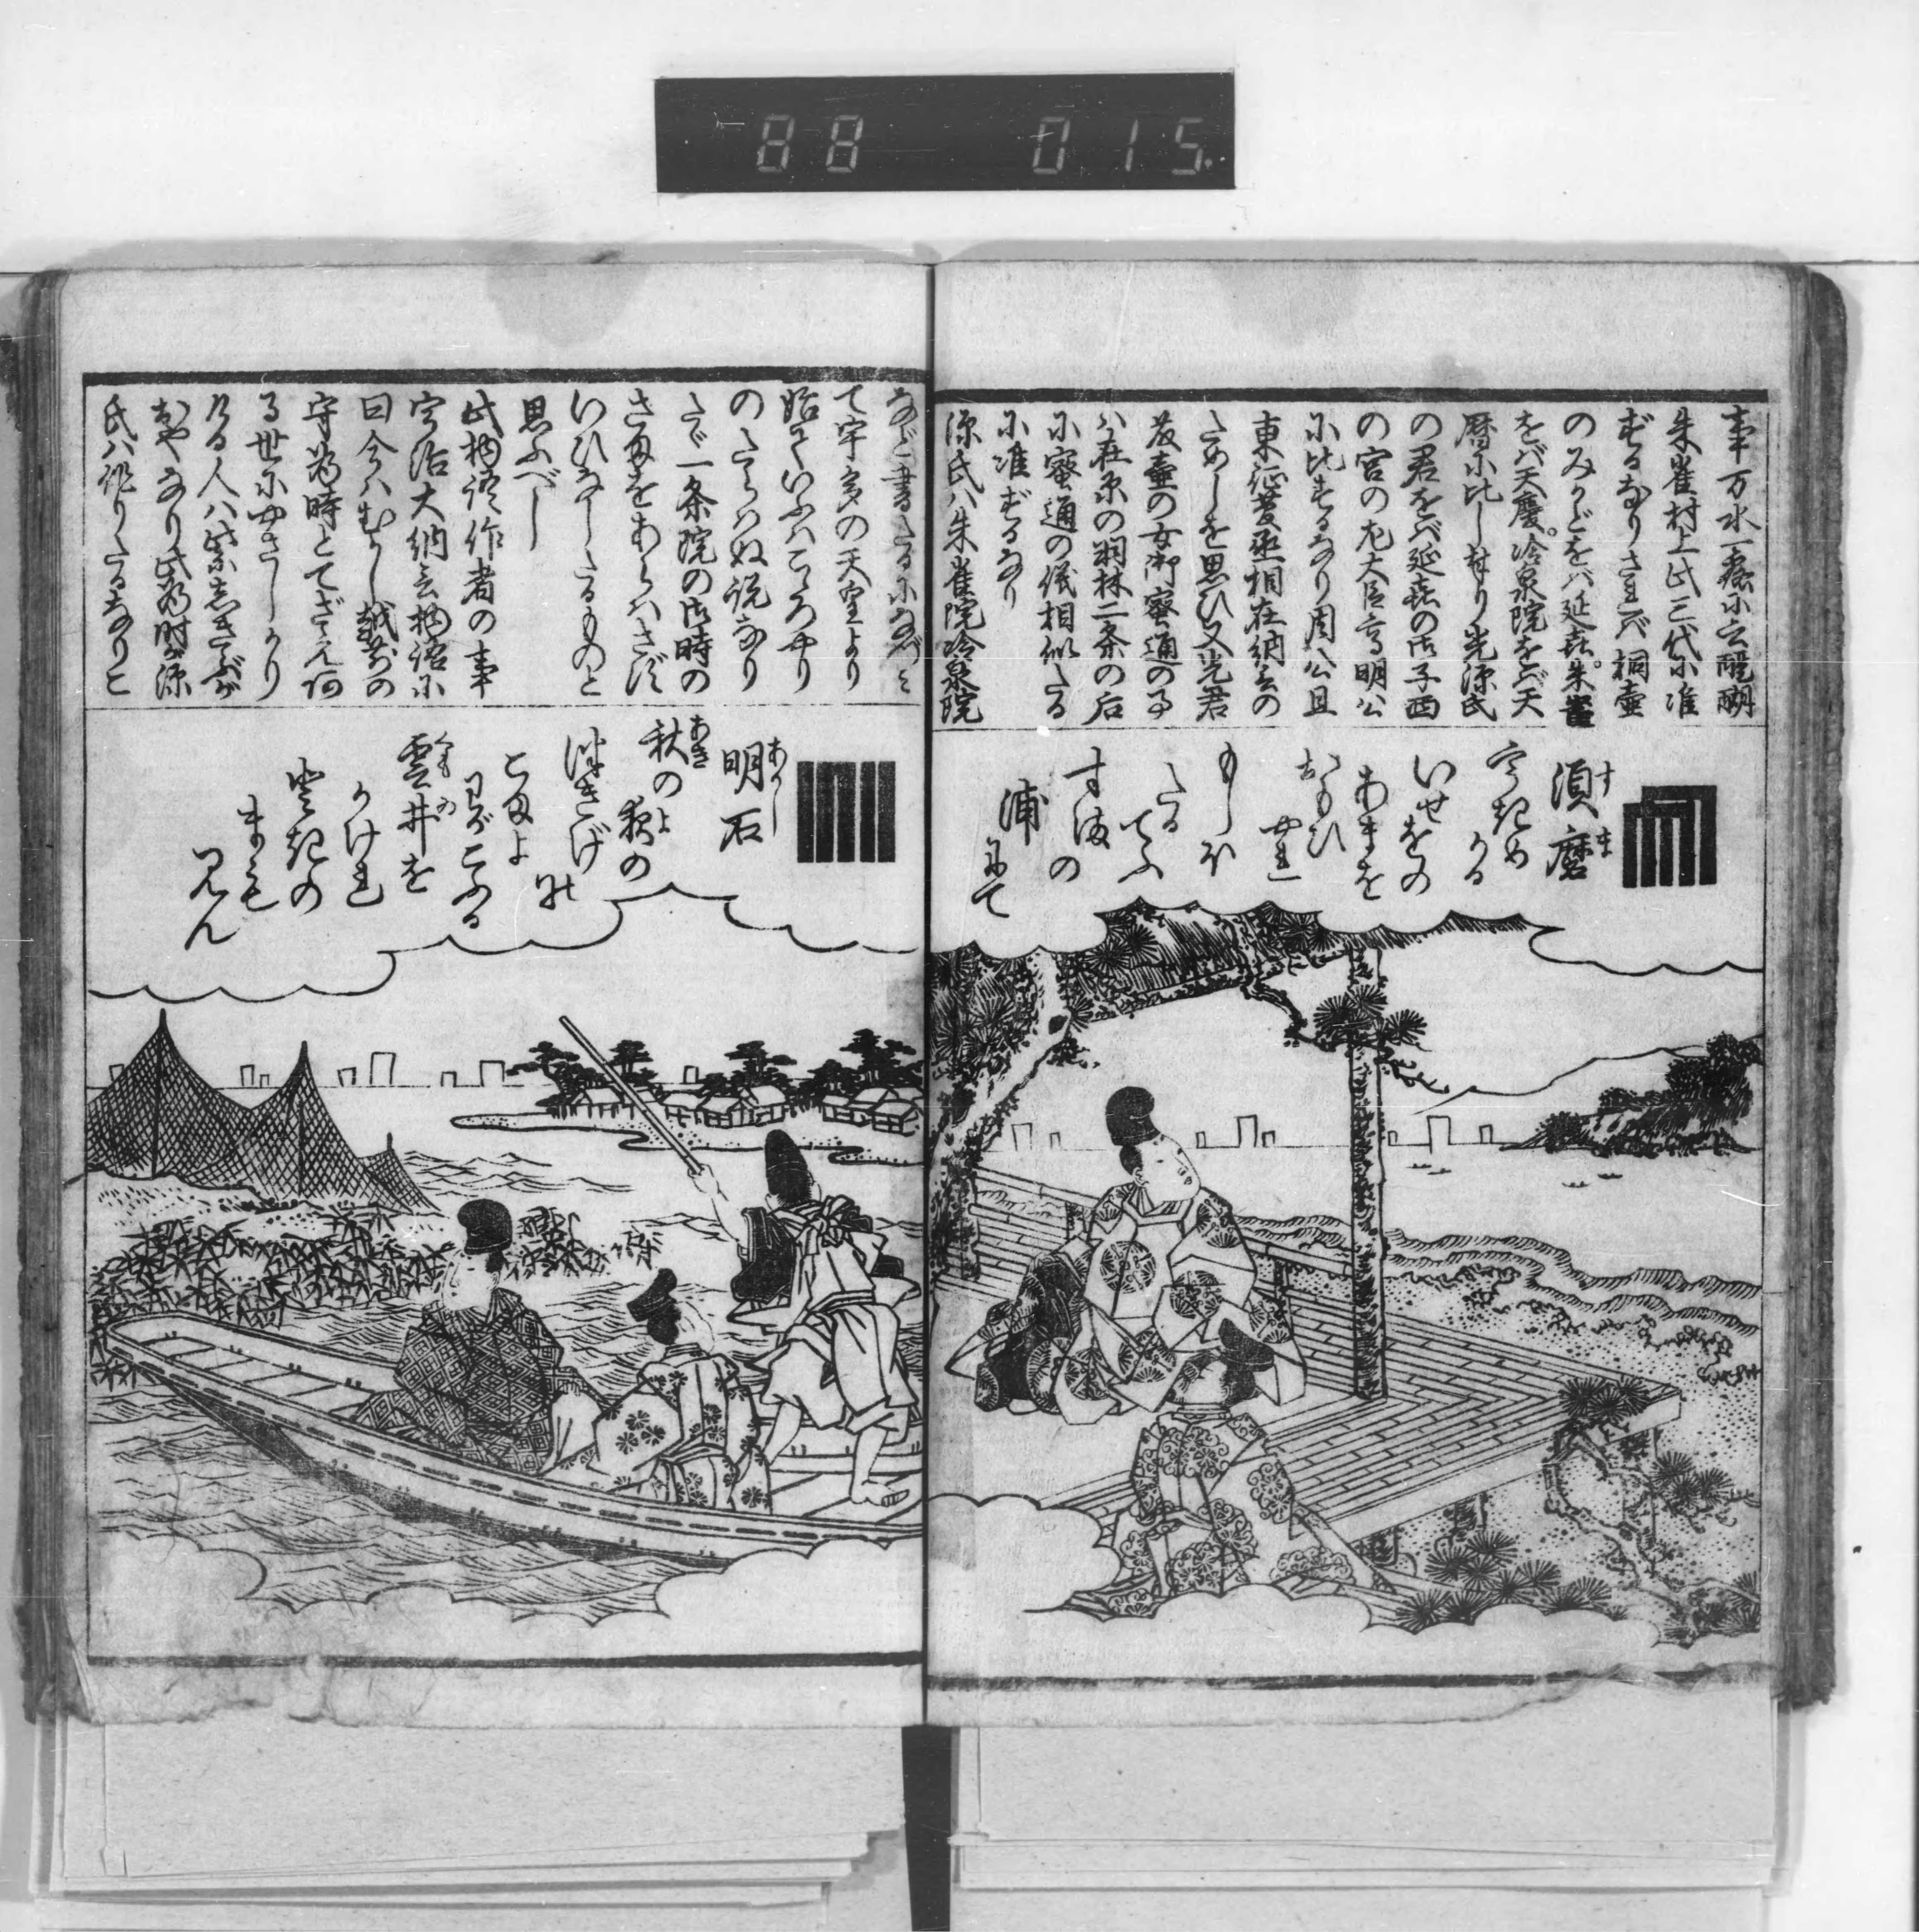 88 015
事万水一露に云醍醐
朱雀村上此三代に准
ずるなりされバ桐壷
のみかどをバ延喜。朱雀
をバ天慶。冷泉院をバ天
暦に比し奉り光源氏
の君をバ延喜の御子西
の宮の左大臣高明公
に比するなり周公旦
東征菅丞相在納言の
ためしを思ひ又光君
藤壷の女御密通の事
ハ在原の羽林二条の后
に蜜通の儀相似たる
に准ずるなり
源氏ハ朱雀院冷泉院
須磨
すま
うきめ
かる
いせをの
あまを
おもひ
やれ
もしほ
たる
てふ
すまの
浦
にて
など書たるになぞへ
て宇多の天皇より
始ていふハこころやり
のたらハぬ説なり
たゞ一条院の御時の
さまをあらハさず
いひなしたるものと
思ふべし
此物語作者の事
宇治大納言物語に
曰今ハむかし越前の
守為時とてざえ有
る世にやさしかり
ける人ハ紫しきぶが
おやなり此為時源
氏ハ作りたるなりと
明石
あかし
秋の
あき
夜の
よ
つきげ
の
こまよ
わがこふる
雲井を
くもゐ
かけれ
ときの
まも
みん